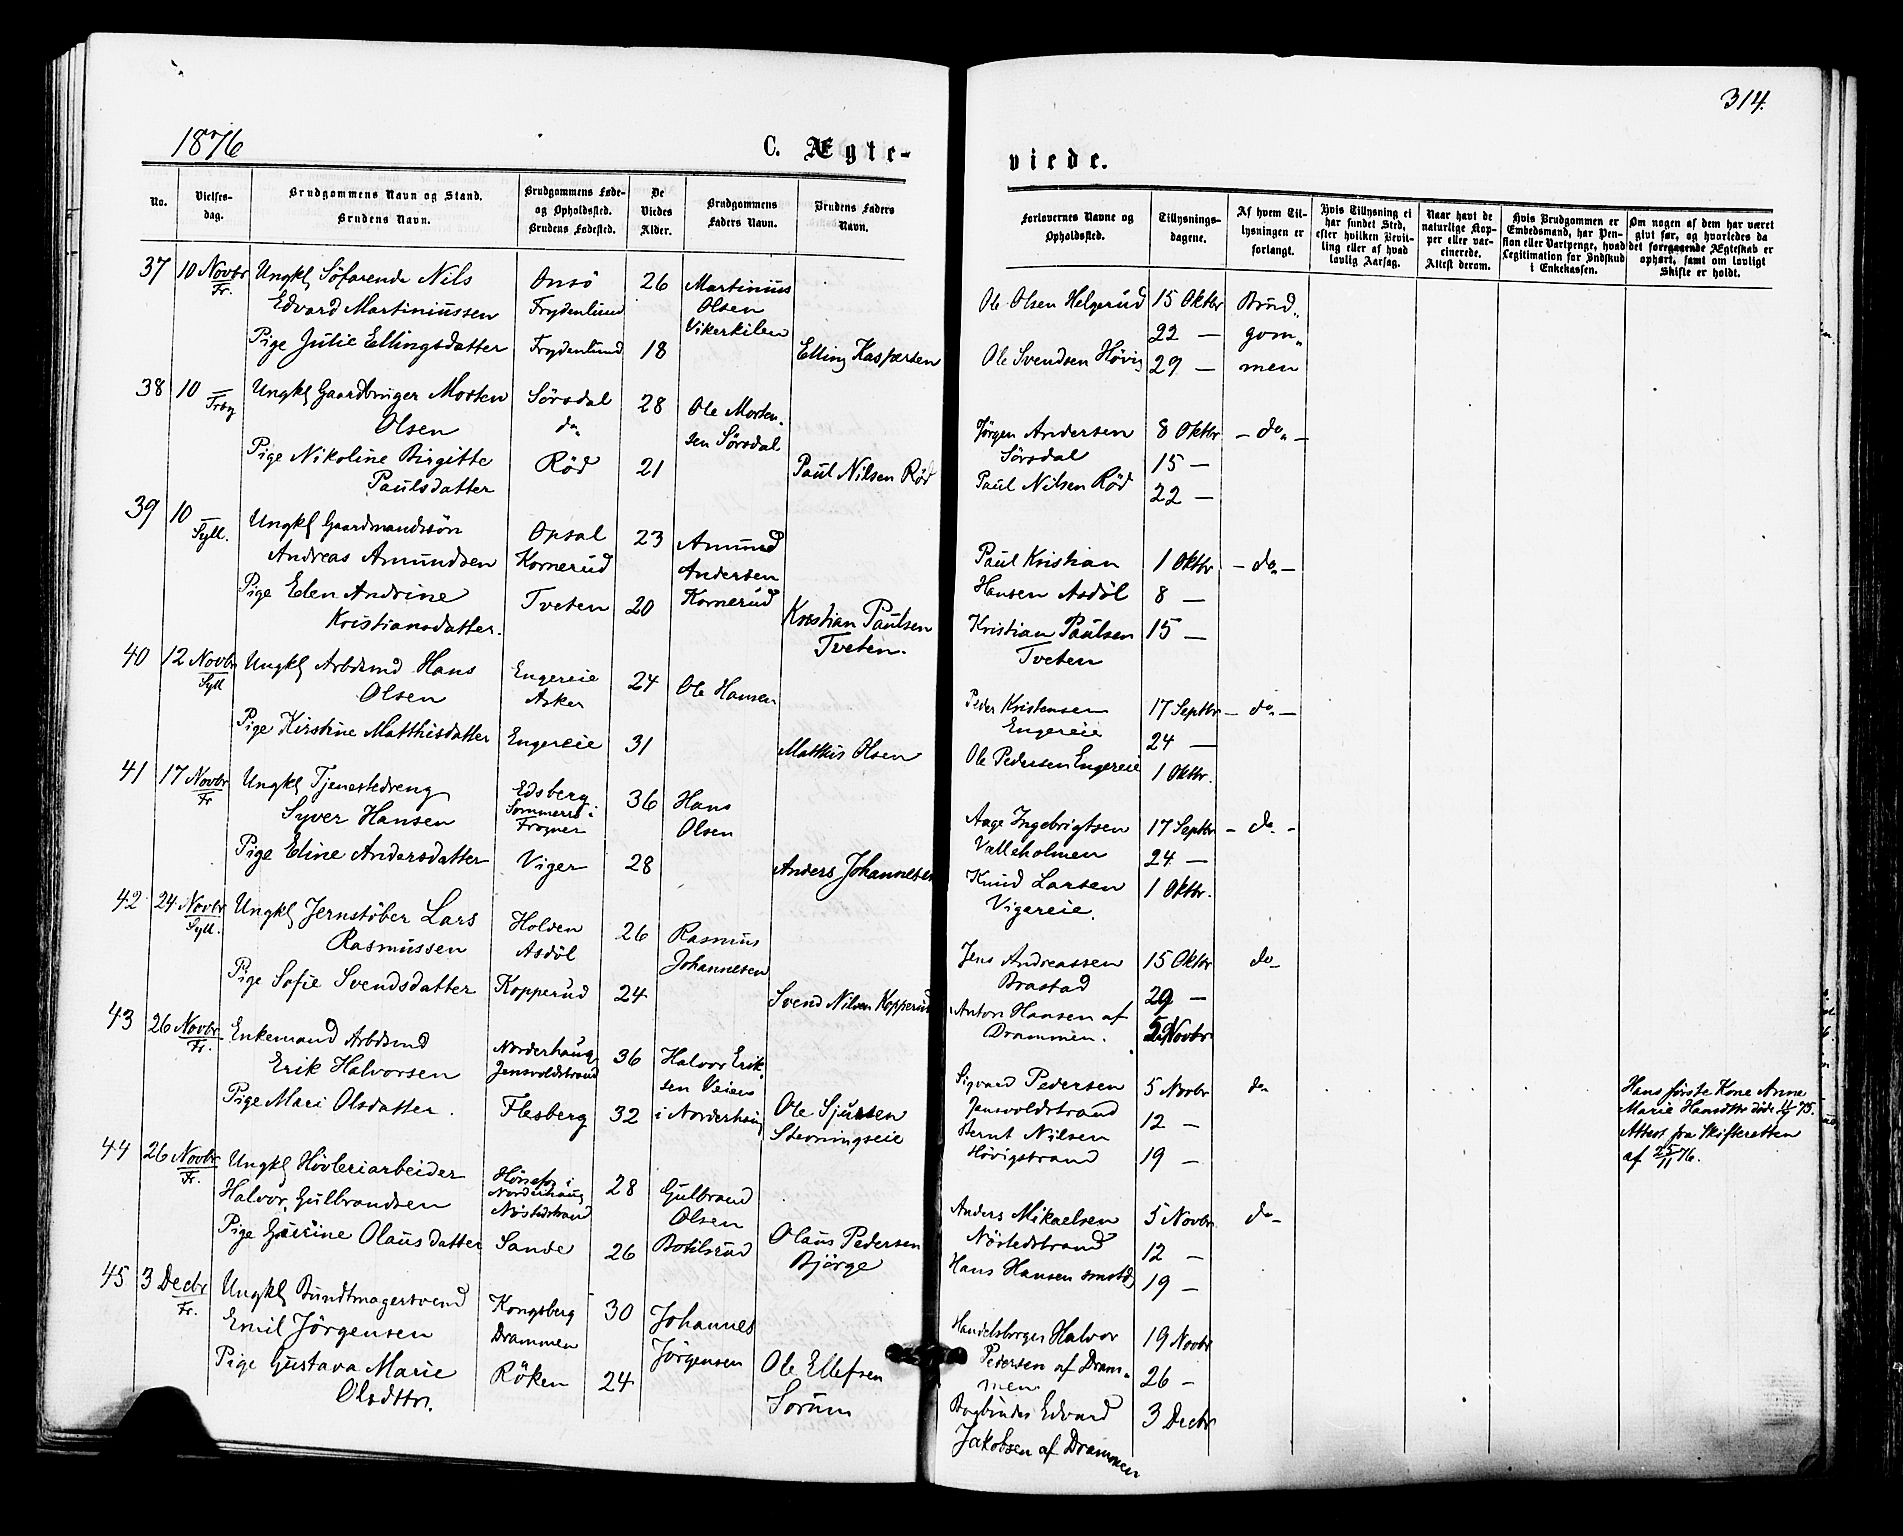 314.
1876
C. Ægte-
viede.
No.
Vielses-
dag.
Brudgommens Navn og Stand.
Brudens Navn.
Brudgommens Føde-
og Opholdssted.
Brudens Fødested.
De
Viedes
Alder.
Brudgommens
Faders Navn.
Brudens Faders
Navn.
Forlovernes Navne og
Opholdssted.
Tillysnings-
dagene.
Af hvem Til-
lysningen er
forlangt.
Hvis Tillysning ei
har fundet Sted,
efter hvilken Bevil-
ling eller af hvad
lovlig Aarsag.
Naar havt de
naturlige Kop-
per eller vac-
cinerede.
Attest derom.
Hvis Brudgommen er
Embedsmand, har Pen-
sion eller Vartpenge, hvad
Legitimation for Indskud
i Enkekassen.
Om nogen af dem har været
givt før, og hvorledes da
det foregaaende Ægteskab er
ophørt, samt om lovligt
Skifte er holdt.
37 10 Novbr Fr.
Ungkl Søfarende Nils
Edvard Martiniussen
Pige Julie Ellingsdatter
Onsö
Frydenlund
Frydenlund
26
18
Martinius
Olsen
Vikerkilen
Elling Kaspersen
Ole Olsen Helgerud
Ole Svendsen Hövig
15 Oktbr
22 —
29 —
Brud„
gom„
men
38 10 —
Ungkl Gaardbruger Morten
Olsen
Pige Nikoline Birgitte
Paulsdatter
Sörsdal
do
Röd
28
21
Ole Morten-
sen Sörsdal
Paul Nilsen Röd
Jörgen Andersen
Sörsdal
Paul Nilsen Röd
8 Oktbr
15 —
22 —
— do —
39 10 — Syll.
Ungkl Gaardmandssön
Andreas Amundsen
Pige Elen Andrine
Kristiansdatter.
Opsal
Kornerud
Tveten
23
20
Amund
Andersen
Kornerud
Kristian Paulsen
Tveten.
Paul Kristian
Hansen Asdöl
Kristian Paulsen
Tveten
1 Oktbr
8 —
15 —
— do —
40 12 Novbr Syll
Ungkl Arbdsmd Hans
Olsen
Pige Kirstine Matthisdatter
Engereie
Asker
Engereie
24
31
Ole Hansen
Matthis Olsen
Peder Kristensen
Engereie
Ole Pedersen Engereie
17 Septbr
24 —
1 Oktbr.
— do —
41 17 Novbr Fr
Ungkl Tjenestedreng
Syver Hansen
Pige Eline Andersdatter
Edsberg
Sommerrö i
Frogner
Viger
36
28
Hans
Olsen
Anders Johannesen
Aage Ingebrigtsen
Valleholmen
Knud Larsen
Vigereie.
17 Septbr
24 —
1 Oktbr.
— do —
42 24 Novbr Syll.
Ungkl Jernstöber Lars
Rasmussen
Pige Sofie Svendsdatter
Holden
Asdöl
Kopperud
26
24
Rasmus
Johannesen
Svend Nilsen Kopperud
Jens Andreassen
Brastad
Anton Hansen af
Drammen.
15 Oktbr
29 —
5 Novbr
do
43 26 Novbr Fr.
Enkemand Arbdsmd
Erik Halvorsen
Pige Mari Olsdatter.
Norderhaug
Jensvoldstrand
Flesberg
36
32
Halvor Erik„
sen Veien
i Norderhaug
Ole Sjursen
Stevningseie
Sigvard Pedersen
Jensvoldstrand
Bernt Nilsen
Hövigstrand
5 Novbr
12 —
19 —
do
Hans förste Kone Anne
Marie Hansdtr döde 75.
Attest fra Skifteretten
af 25/11 76.
44 26 Novbr Fr.
Ungkl Hövleriarbeider
Halvor Gulbrandsen
Pige Gurine Olausdatter
Hönefos i
Norderhaug
Nöstedstrand
Sande
28
26
Gulbrand
Olsen
Botilsrud
Olaus Pedersen
Bjørge
Anders Mikaelsen
Nöstedstrand
Hans Hansen smstds
5 Novbr
12 —
19 —
do
45 3 Decbr Fr.
Ungkl Bundtmagersvend
Emil Jörgensen
Pige Gustava Marie
Olsdttr.
Kongsberg
Drammen
Röken
30
24
Johannes
Jörgensen
Ole Ellefsen
Sorum
Handelsborger Halvor
Pedersen af Dram„
men
Bogbinder Edvard
Jakobsen af Drammen
19 Novbr
26 —
3 Decbr